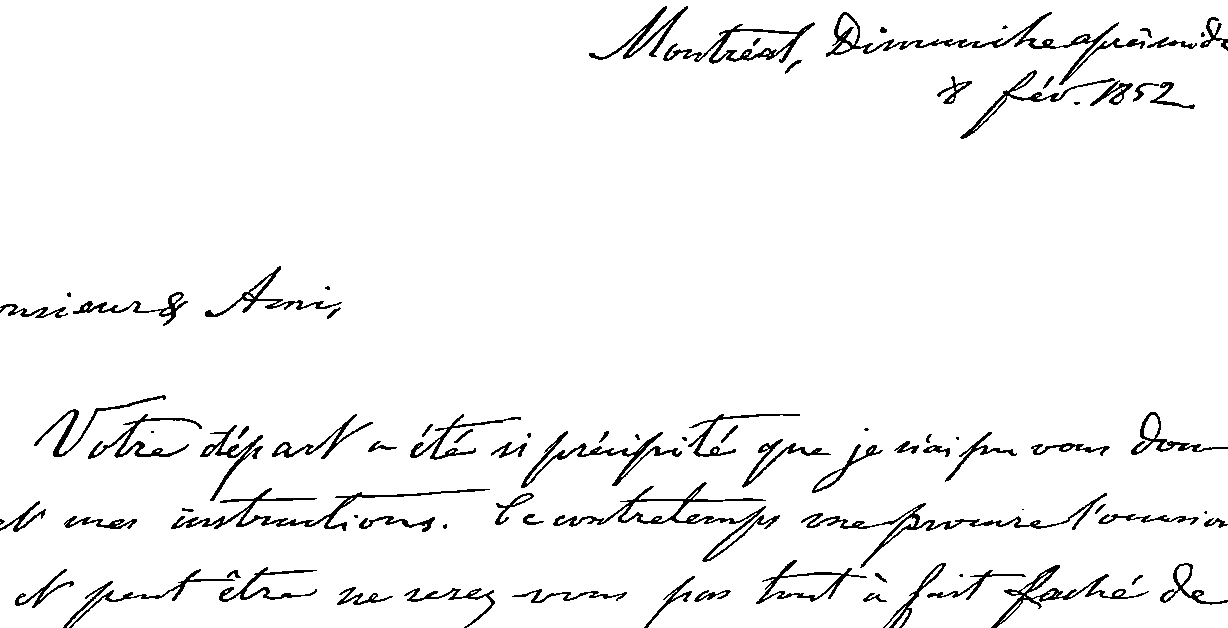 Montréal, Dimanche après midi
8 fév. 1852
onsieur & Ami,
Votre départ a été si précipité que je n'ai pu vous donn
et mes instructions. Ce contretemps me procure l'occasion
et peut être ne serez vous pas tout à fait faché de